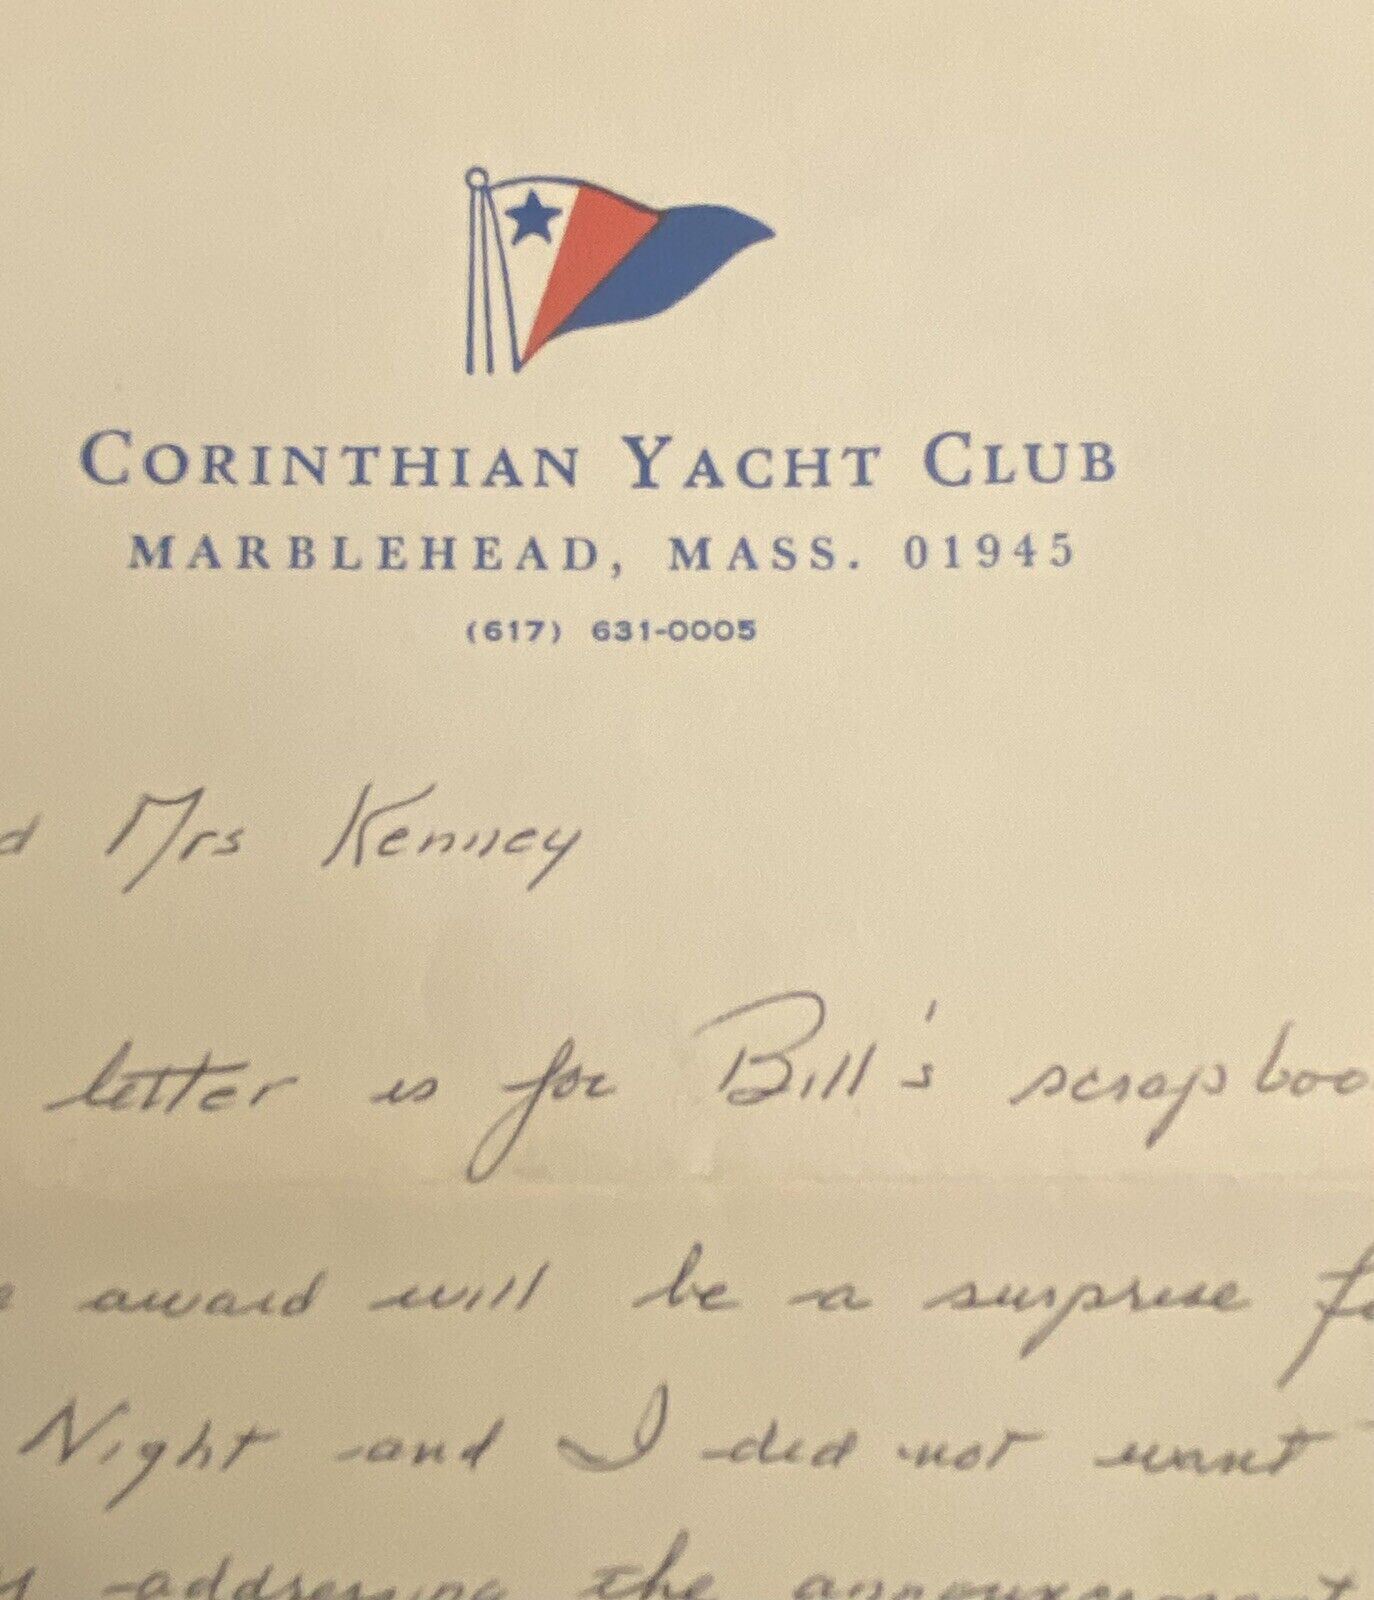 CORINTHIAN YACHT CLUB
MARBLEHEAD, MASS. 01945
(617) 631-0005
d Mrs Kenney
letter is for Bill's scrapboo
award will be a surprise f
Night and I did not want
addressing the announcement